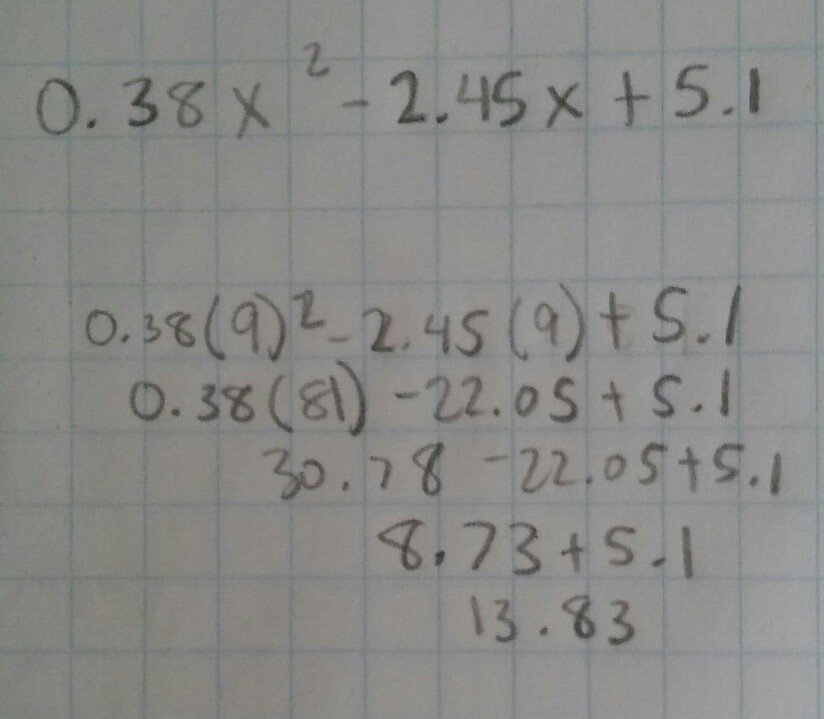 0.38x² - 2.45x + 5.1
0.38(9)² - 2.45(9) + 5.1
0.38(81) - 22.05 + 5.1
30.78 - 22.05 + 5.1
8.73 + 5.1
13.83